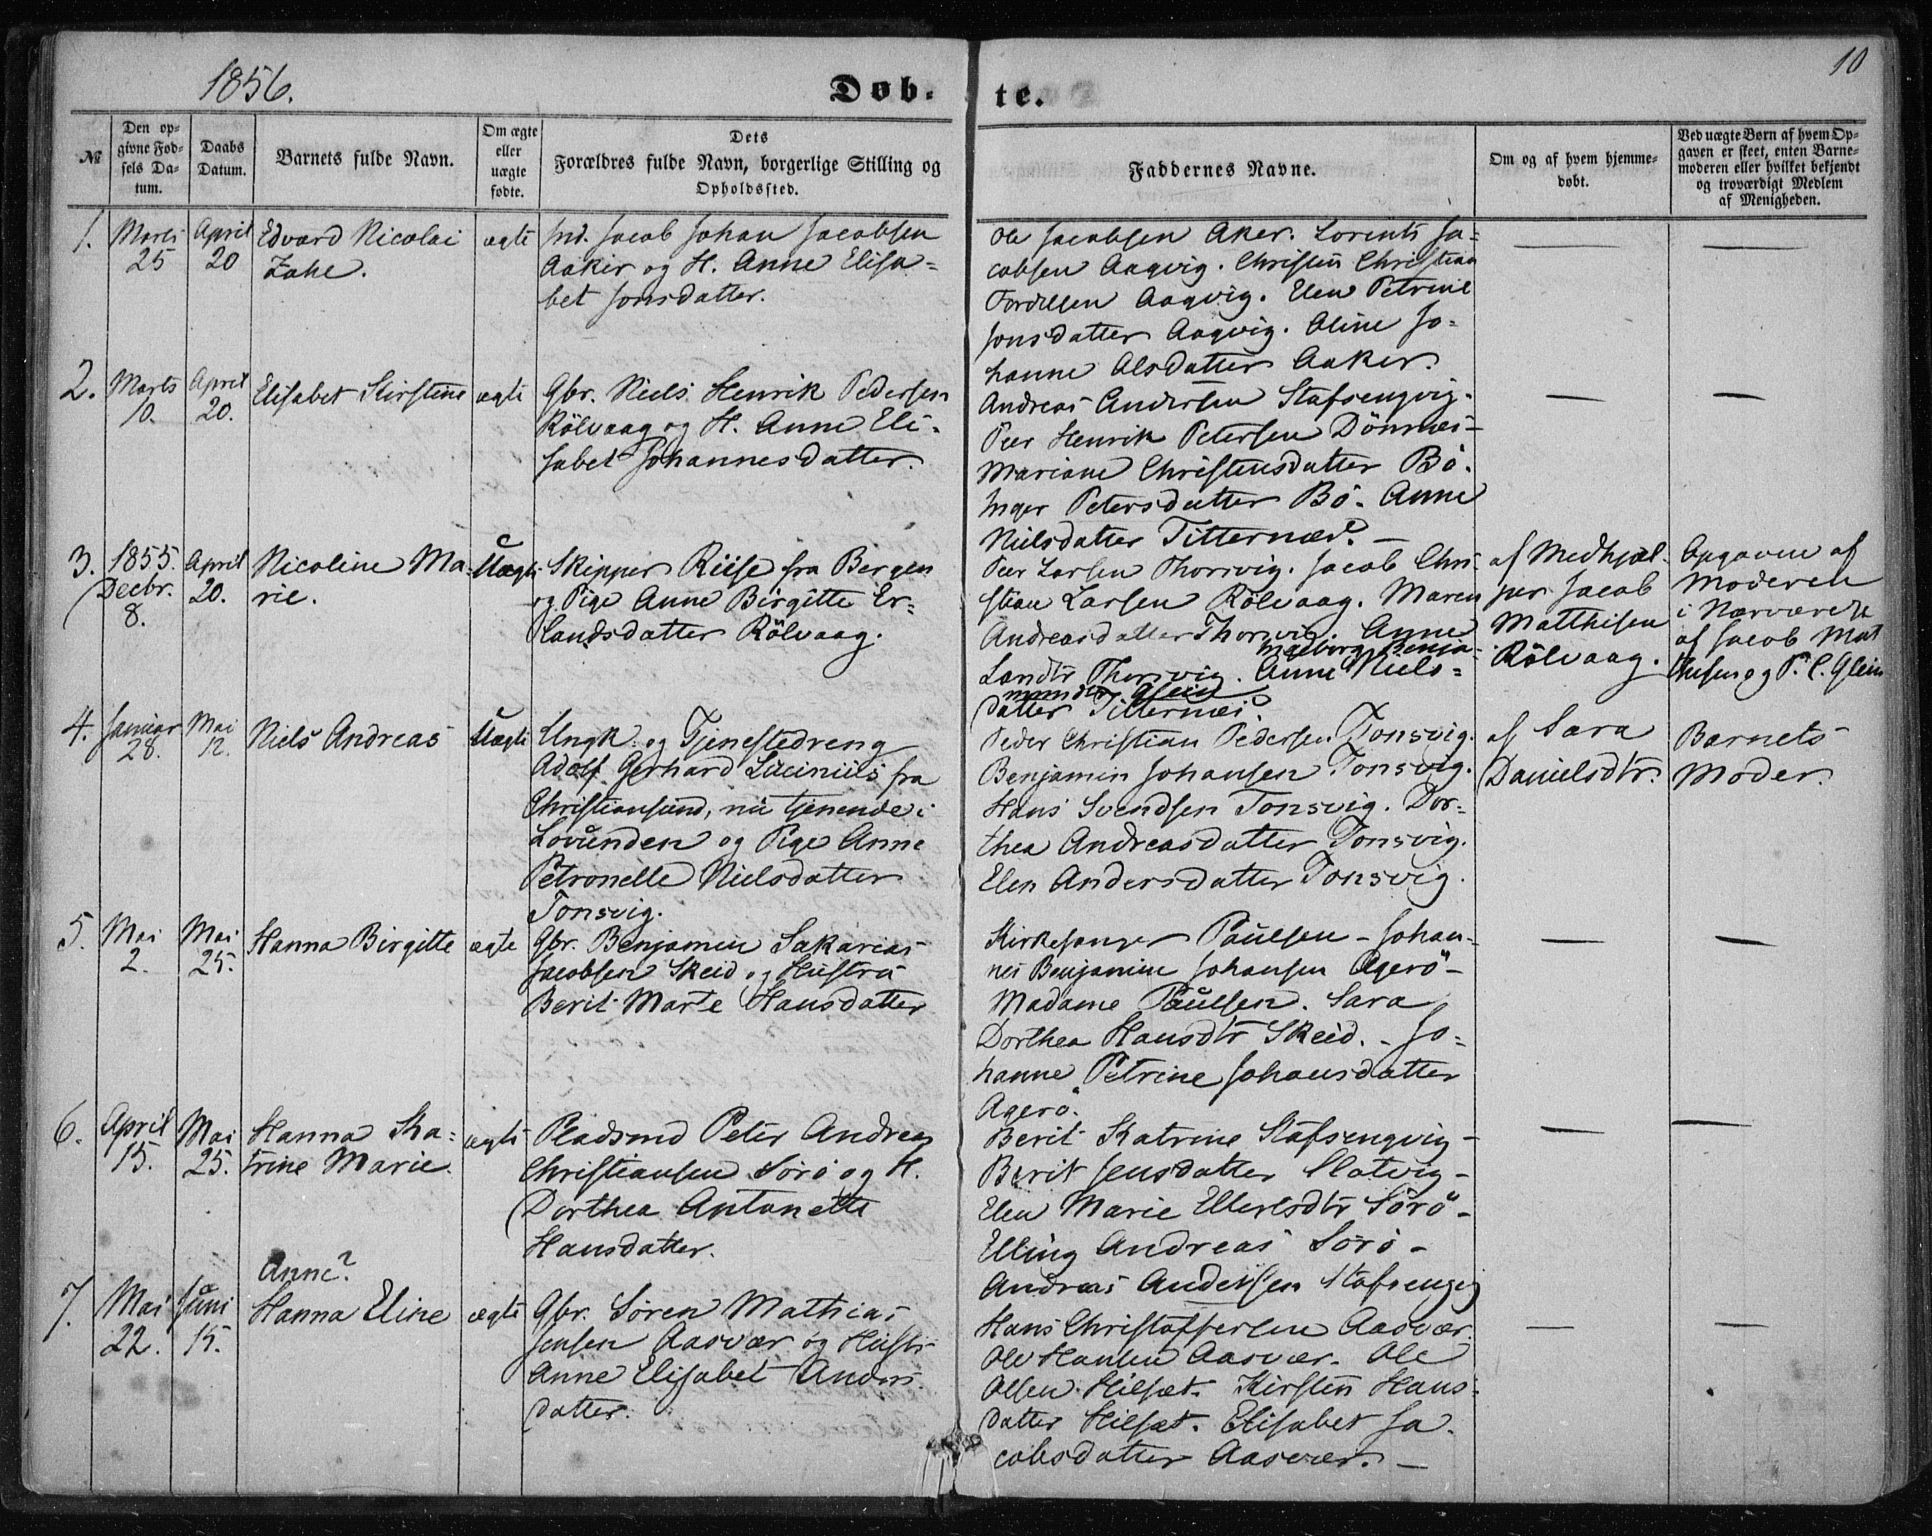 1856.
Døb-
te.
10
№
Den op-
givne Fød-
sels Da-
tum.
Daabs
Datum.
Barnets fulde Navn.
Om ægte
eller
uægte
fødte.
Dets
Forældres fulde Navn, borgerlige Stilling og
Opholdssted.
Faddernes Navne.
Om og af hvem hjemme-
døbt.
Ved uægte Børn af hvem Op-
gaven er skeet, enten Barne-
moderen eller hvilket bekjendt
og troværdigt Medlem
af Menigheden.
1.
Marts
25
April
20
Edvard Nicolai
Zahe.
ægte
Ind. Jacob Johan Jacobsen
Aaker og H. Anne Elisa-
bet Jonsdatter.
Ole Jacobsen Aker. Lorents Ja-
cobsen Aagvig. Christen Christian
Aagvig. Elen Petrine
Jonsdatter Aagvig. Aline Jo-
hanne Olsdatter Aaker.
—
—
2.
Marts
10.
April
20.
Elisabet Kirstine
ægte
Gbr. Niels Henrik Pedersen
Rölvaag og H. Anne Eli-
sabet Johannesdatter.
Andreas Andersen Stafsengvig.
Peer Henrik Petersen Dönnæs-
Mariane Christensdatter Bö.
Inger Petersdatter Bö. Anne
Nielsdatter Titternæs. —
—
—
3.
1855.
Decbr.
8.
April
20.
Nicoline Ma-
rie.
Uægte
Skipper Riise fra Bergen
og Pige Anne Birgitte Er-
landsdatter Rölvaag.
Peer Larsen Thorsvig. Jacob Chri-
stian Larsen Rölvaag. Maren
Andreasdatter Thorsvig. Anne
Ingeborg Benja-
Landtr Thorsvig. Anne Niels-
minsdtr Glein
datter Titternæs.
af Medhjæl-
per Jacob
Matthisen
Rölvaag.
Opgaven af
Moderen
i Nærværelse
af Jacob Mat
thisen og P. C. Glein
4.
Januar
28.
Mai
12.
Niels Andreas
Uægte
Ungk. og Tjenestedreng
Adolf Gerhard Lucinius fra
Christiansund, nu tjenende i
Lovunden og Pige Anne
Petronelle Nielsdatter
Tonsvig.
Peder Christian Pedersen Tonsvig.
Benjamin Johansen Tonsvig.
Hans Svendsen Tonsvig. Dor-
thea Andreasdatter Tonsvig.
Elen Andersdatter Tonsvig.
af Sara
Danielsdtr.
Barnets
Moder.
5.
Mai
2.
Mai
25.
Hanna Birgitte
ægte
Gbr. Benjamin Sakarias
Jacobsen Skeid og Hustru
Berit Marte Hansdatter
Kirkesanger Paulsen - Johan-
nes Benjamin Johansen Agerö -
Madame Paulsen. Sara
Dorthea Hansdtr Skeid. - Jo-
hanne Petrine Johansdatter
Agerö.
—
—
6.
April
15.
Mai
25.
Hanna Ka-
trine Marie.
ægte
Pladsmd Peter Andreas
Christiansen Sörö og H.
Dorthea Antonette
Hansdatter.
Berit Katrine Stafsengvig -
Berit Jensdatter Slotvig -
Elen Marie Ellertsdtr Sörö -
Elling Andreas Sörö -
Andreas Andersen Stafsengvig
—
—
7.
Mai
22.
Juni
15.
Anne?
Hanna Eline
ægte
Gbr. Sören Mathias
Jensen Aasvær og Hustr
Anne Elisabet Anders
datter.
Hans Christoffersen Aasvær.
Ole Hansen Aasvær. Ole
Olsen Hilsæt. Kirsten Hans-
datter Hilsæt. Elisabet Ja-
cobsdatter Aasvær. —
—
—